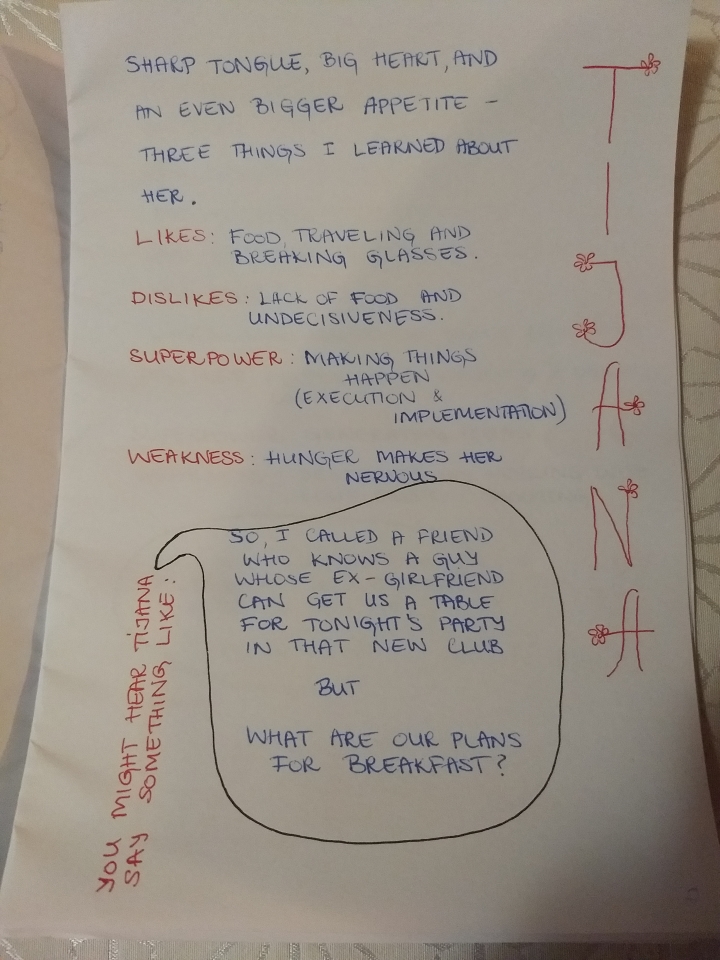 SHARP TONGUE, BIG HEART, AND
AN EVEN BIGGER APPETITE -
THREE THINGS I LEARNED ABOUT
HER.
LIKES: FOOD, TRAVELING AND
BREAKING GLASSES.
DISLIKES: LACK OF FOOD AND
UNDECISIVENESS.
SUPERPOWER: MAKING THINGS
HAPPEN
(EXECUTION &
IMPLEMENTATION)
WEAKNESS: HUNGER MAKES HER
NERVOUS
YOU MIGHT HEAR TIJANA
SAY SOMETHING LIKE:
SO, I CALLED A FRIEND
WHO KNOWS A GUY
WHOSE EX-GIRLFRIEND
CAN GET US A TABLE
FOR TONIGHT'S PARTY
IN THAT NEW CLUB
BUT
WHAT ARE OUR PLANS
FOR BREAKFAST?
TIJANA